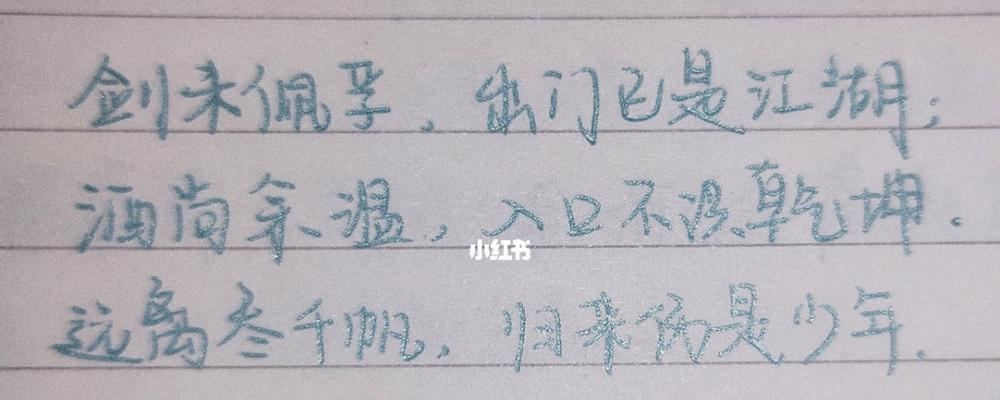 剑未佩妥，出门已是江湖；
酒尚余温，入口不识乾坤．
小红书
远离叁千帆，归来仍是少年．